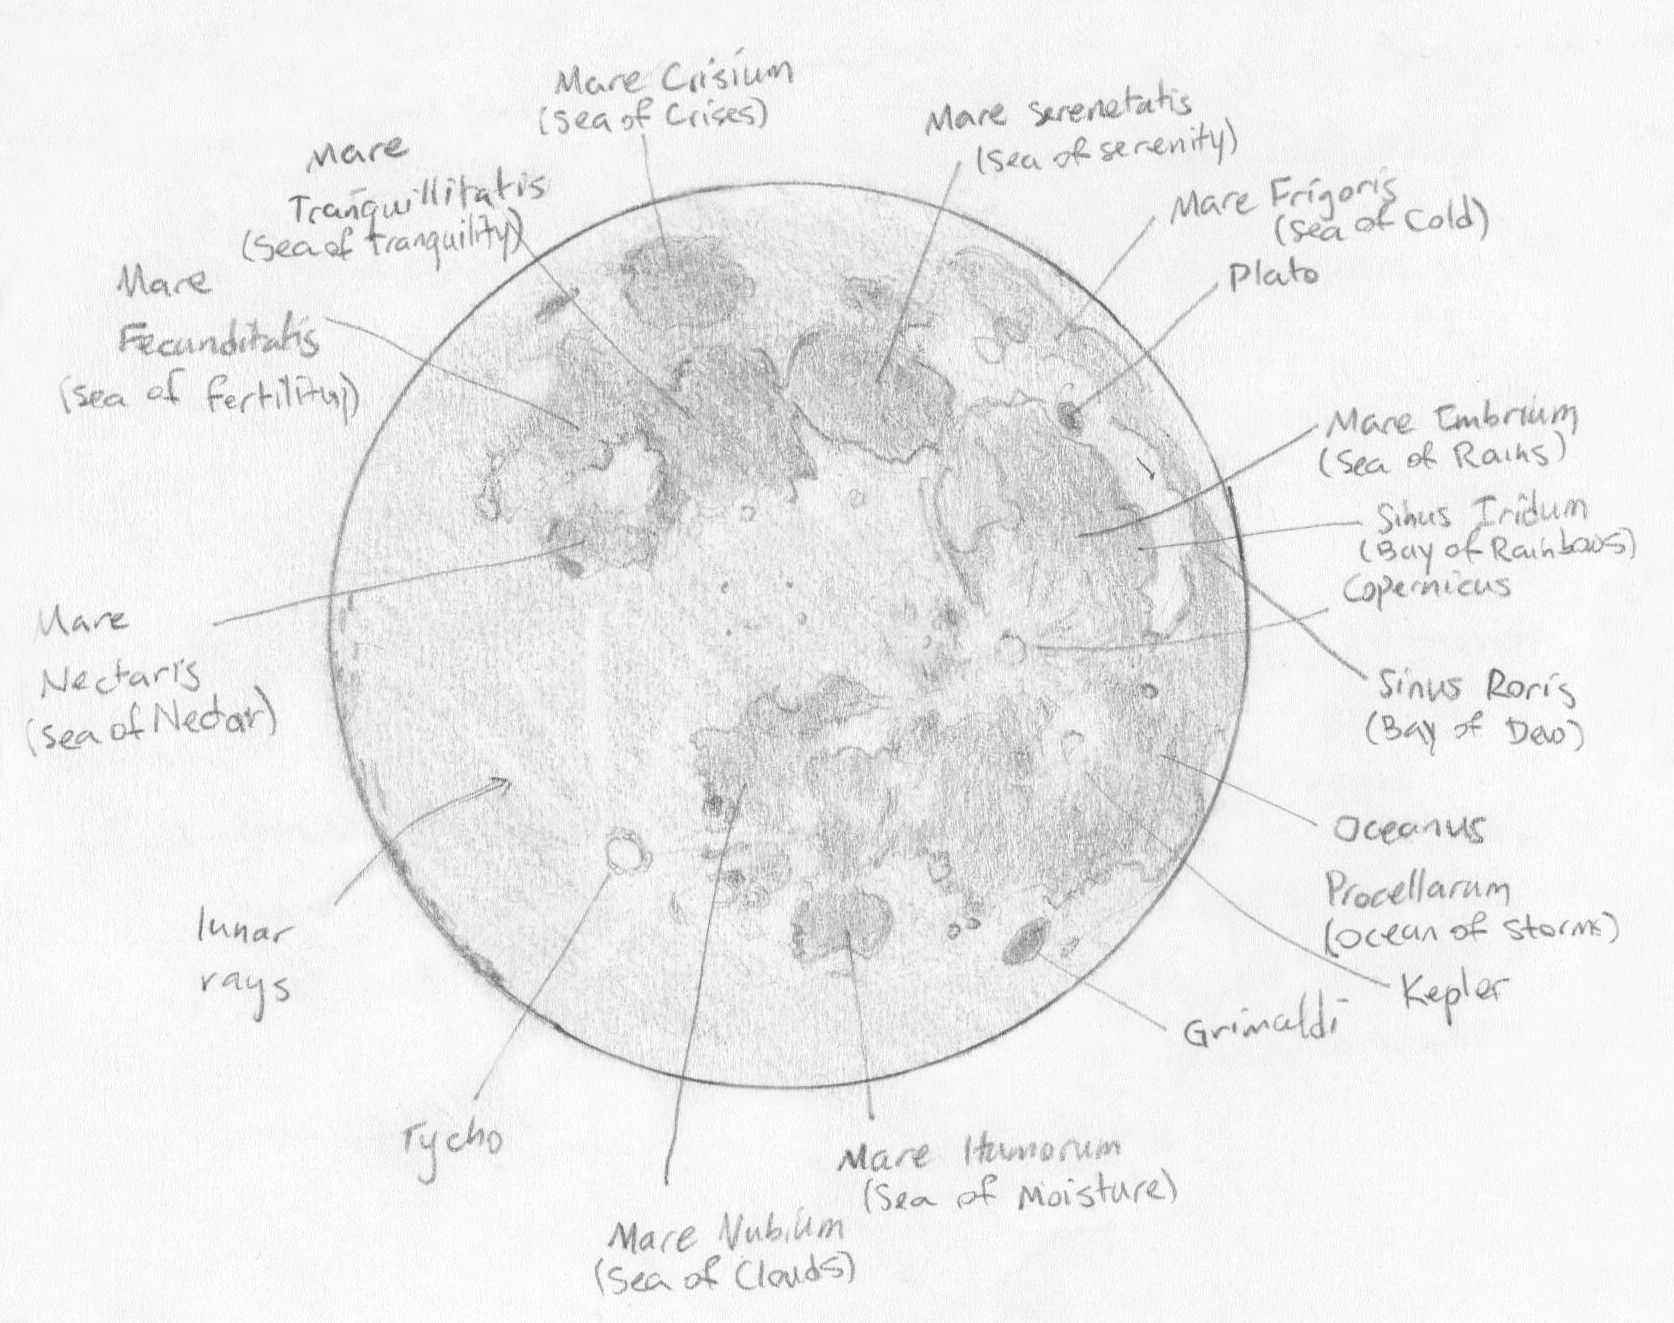 Mare Crisium
(Sea of Crises)
Mare Serenetatis
(Sea of serenity)
Mare
Tranquillitatis
(Sea of tranquility)
Mare Frigoris
(Sea of Cold)
Plato
Mare
Fecunditatis
(Sea of fertility)
Mare Imbrium
(Sea of Rains)
Sinus Iridum
(Bay of Rainbows)
Copernicus
Mare
Nectaris
(Sea of Nectar)
Sinus Roris
(Bay of Dew)
Oceanus
Procellarum
(Ocean of Storms)
Kepler
Grimaldi
lunar
rays
Tycho
Mare Humorum
(Sea of Moisture)
Mare Nubium
(Sea of Clouds)